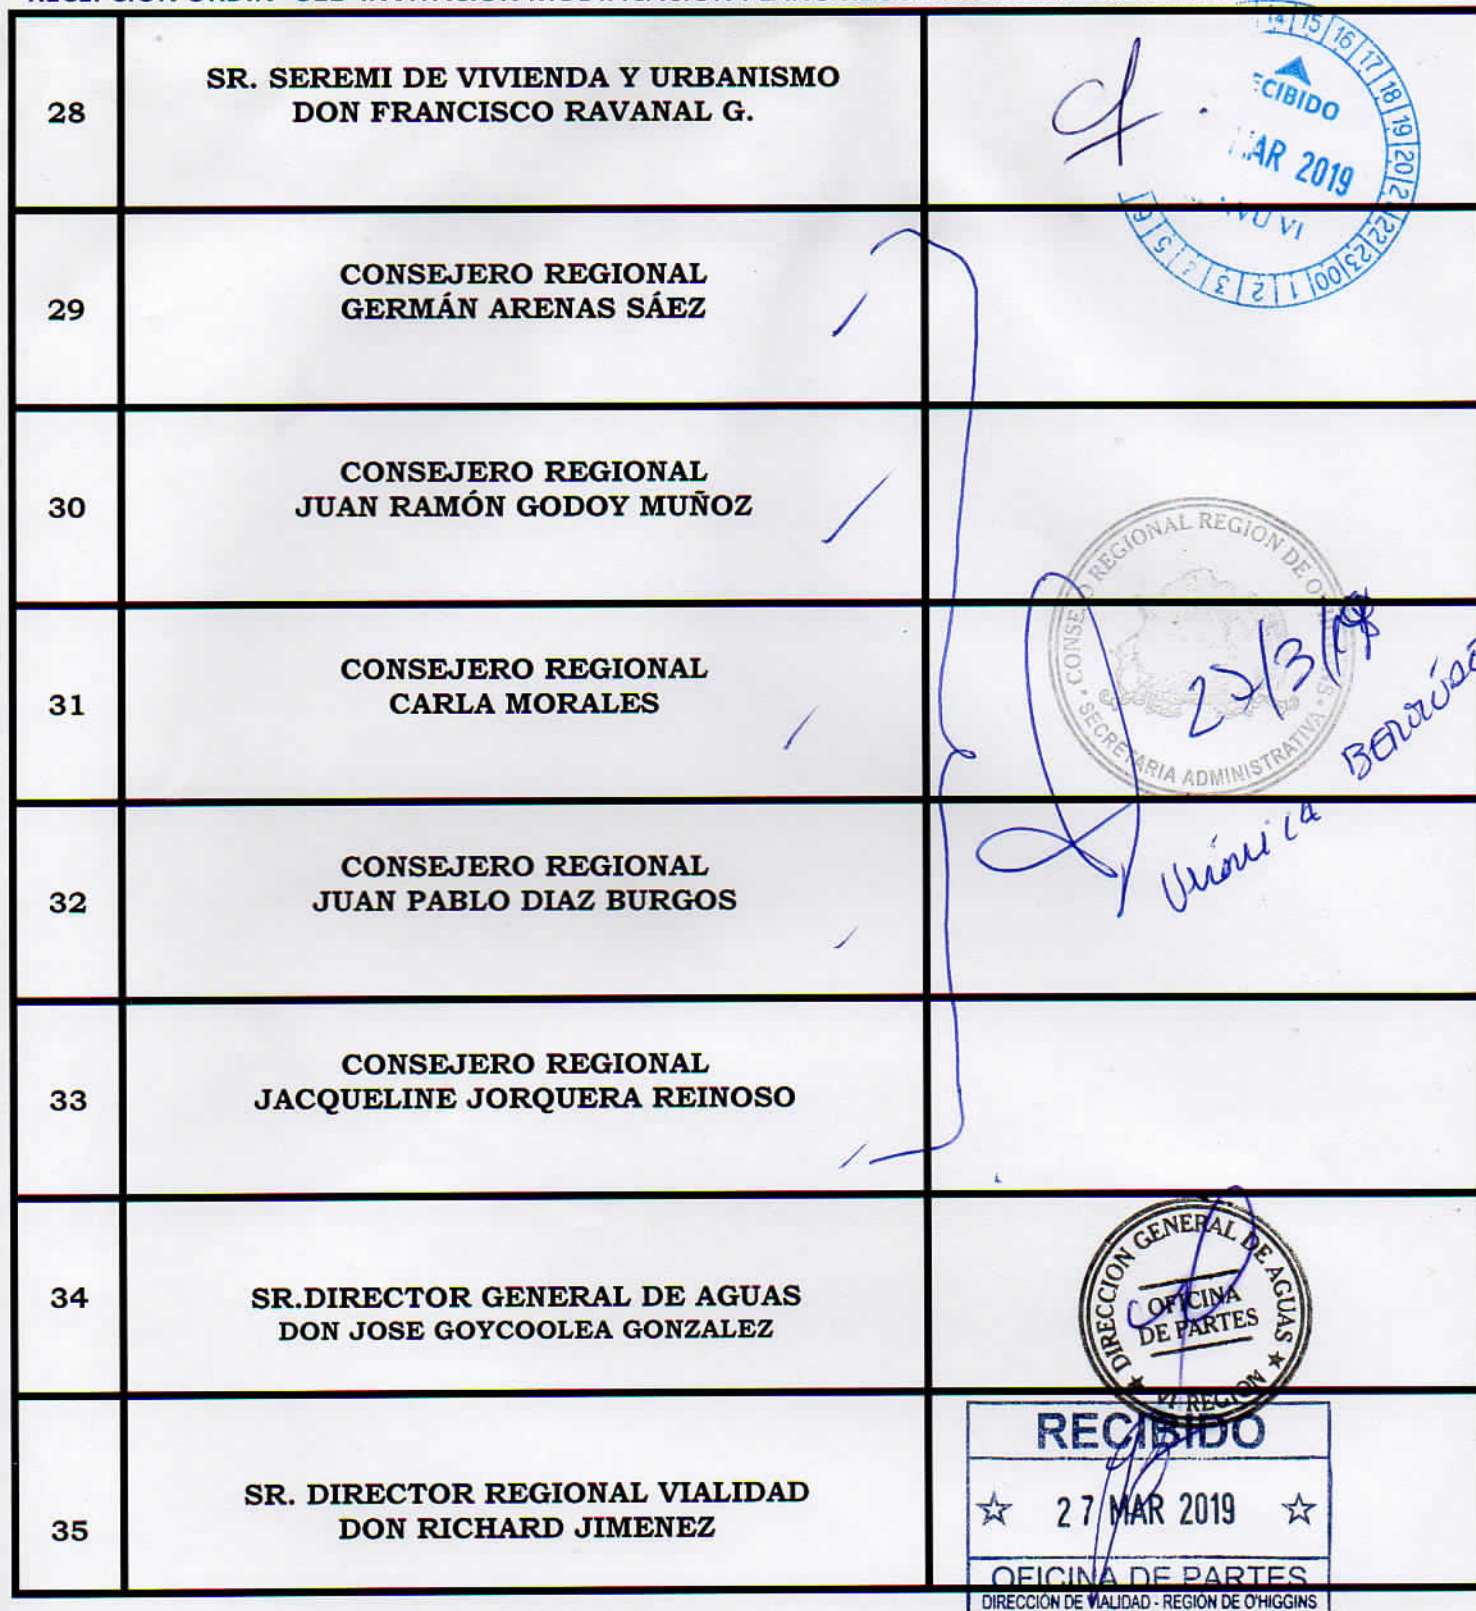 28
SR. SEREMI DE VIVIENDA Y URBANISMO
DON FRANCISCO RAVANAL G.
14 15 16 17 18 19 20 21 22 23 00 1 2 3 4 5 6
ECIBIDO
MAR 2019
VI
29
CONSEJERO REGIONAL
GERMÁN ARENAS SÁEZ
30
CONSEJERO REGIONAL
JUAN RAMÓN GODOY MUÑOZ
CONSEJO REGIONAL REGION DE O'
SECRETARIA ADMINISTRATIVA
31
CONSEJERO REGIONAL
CARLA MORALES
32
CONSEJERO REGIONAL
JUAN PABLO DIAZ BURGOS
Verónica
33
CONSEJERO REGIONAL
JACQUELINE JORQUERA REINOSO
34
SR.DIRECTOR GENERAL DE AGUAS
DON JOSE GOYCOOLEA GONZALEZ
DIRECCION GENERAL DE AGUAS
OFICINA
DE PARTES
VI REGION
35
SR. DIRECTOR REGIONAL VIALIDAD
DON RICHARD JIMENEZ
RECIBIDO
27 MAR 2019
OFICINA DE PARTES
DIRECCIÓN DE VIALIDAD - REGIÓN DE O'HIGGINS